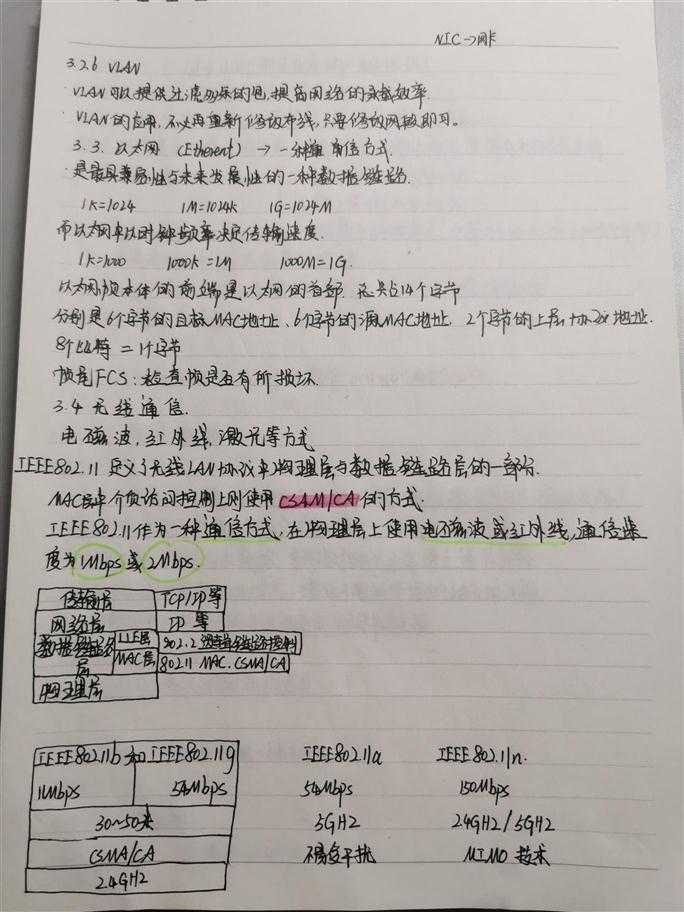 NIC→网卡
3.2.6 VLAN
VLAN可以提供过滤多余的包,提高网络的承载效率
VLAN的应用,不必再重新修改布线,只要修改网段即可。
3.3. 以太网 (Etherent) → 一种 通信方式.
是最具兼容性与未来发展性的一种数据链路.
1K=1024 1M=1024K 1G=1024M
而以太网中以时钟频率决定传输速度.
1K=1000 1000K=1M 1000M=1G.
以太网帧本体的前端是以太网的首部. 总共占14个字节
分别是6个字节的目标MAC地址、6个字节的源MAC地址. 2个字节的上层协议地址.
8个比特=1个字节
帧尾FCS:检查帧是否有所损坏.
3.4 无线通信.
电磁波,红外线,激光等方式
IEEE802.11 定义了无线LAN协议中物理层与数据链路层的一部分.
MAC层中介质访问控制上则使用CSAM/CA的方式.
IEEE802.11作为一种通信方式,在物理层上使用电磁波或红外线,通信速
度为1Mbps或2Mbps.
传输层 TCP/UDP等
网络层 IP等
数据链路层 LLE层 802.2逻辑链路控制
MAC层 802.11 MAC. CSMA/CA
物理层
IEEE802.11b和IEEE802.11g IEEE802.11a IEEE802.11n.
11Mbps 54Mbps 54Mbps 150Mbps
30~50米 5GHZ 2.4GHZ/5GHZ
CSMA/CA 不易受干扰 MIMO 技术
2.4GHZ